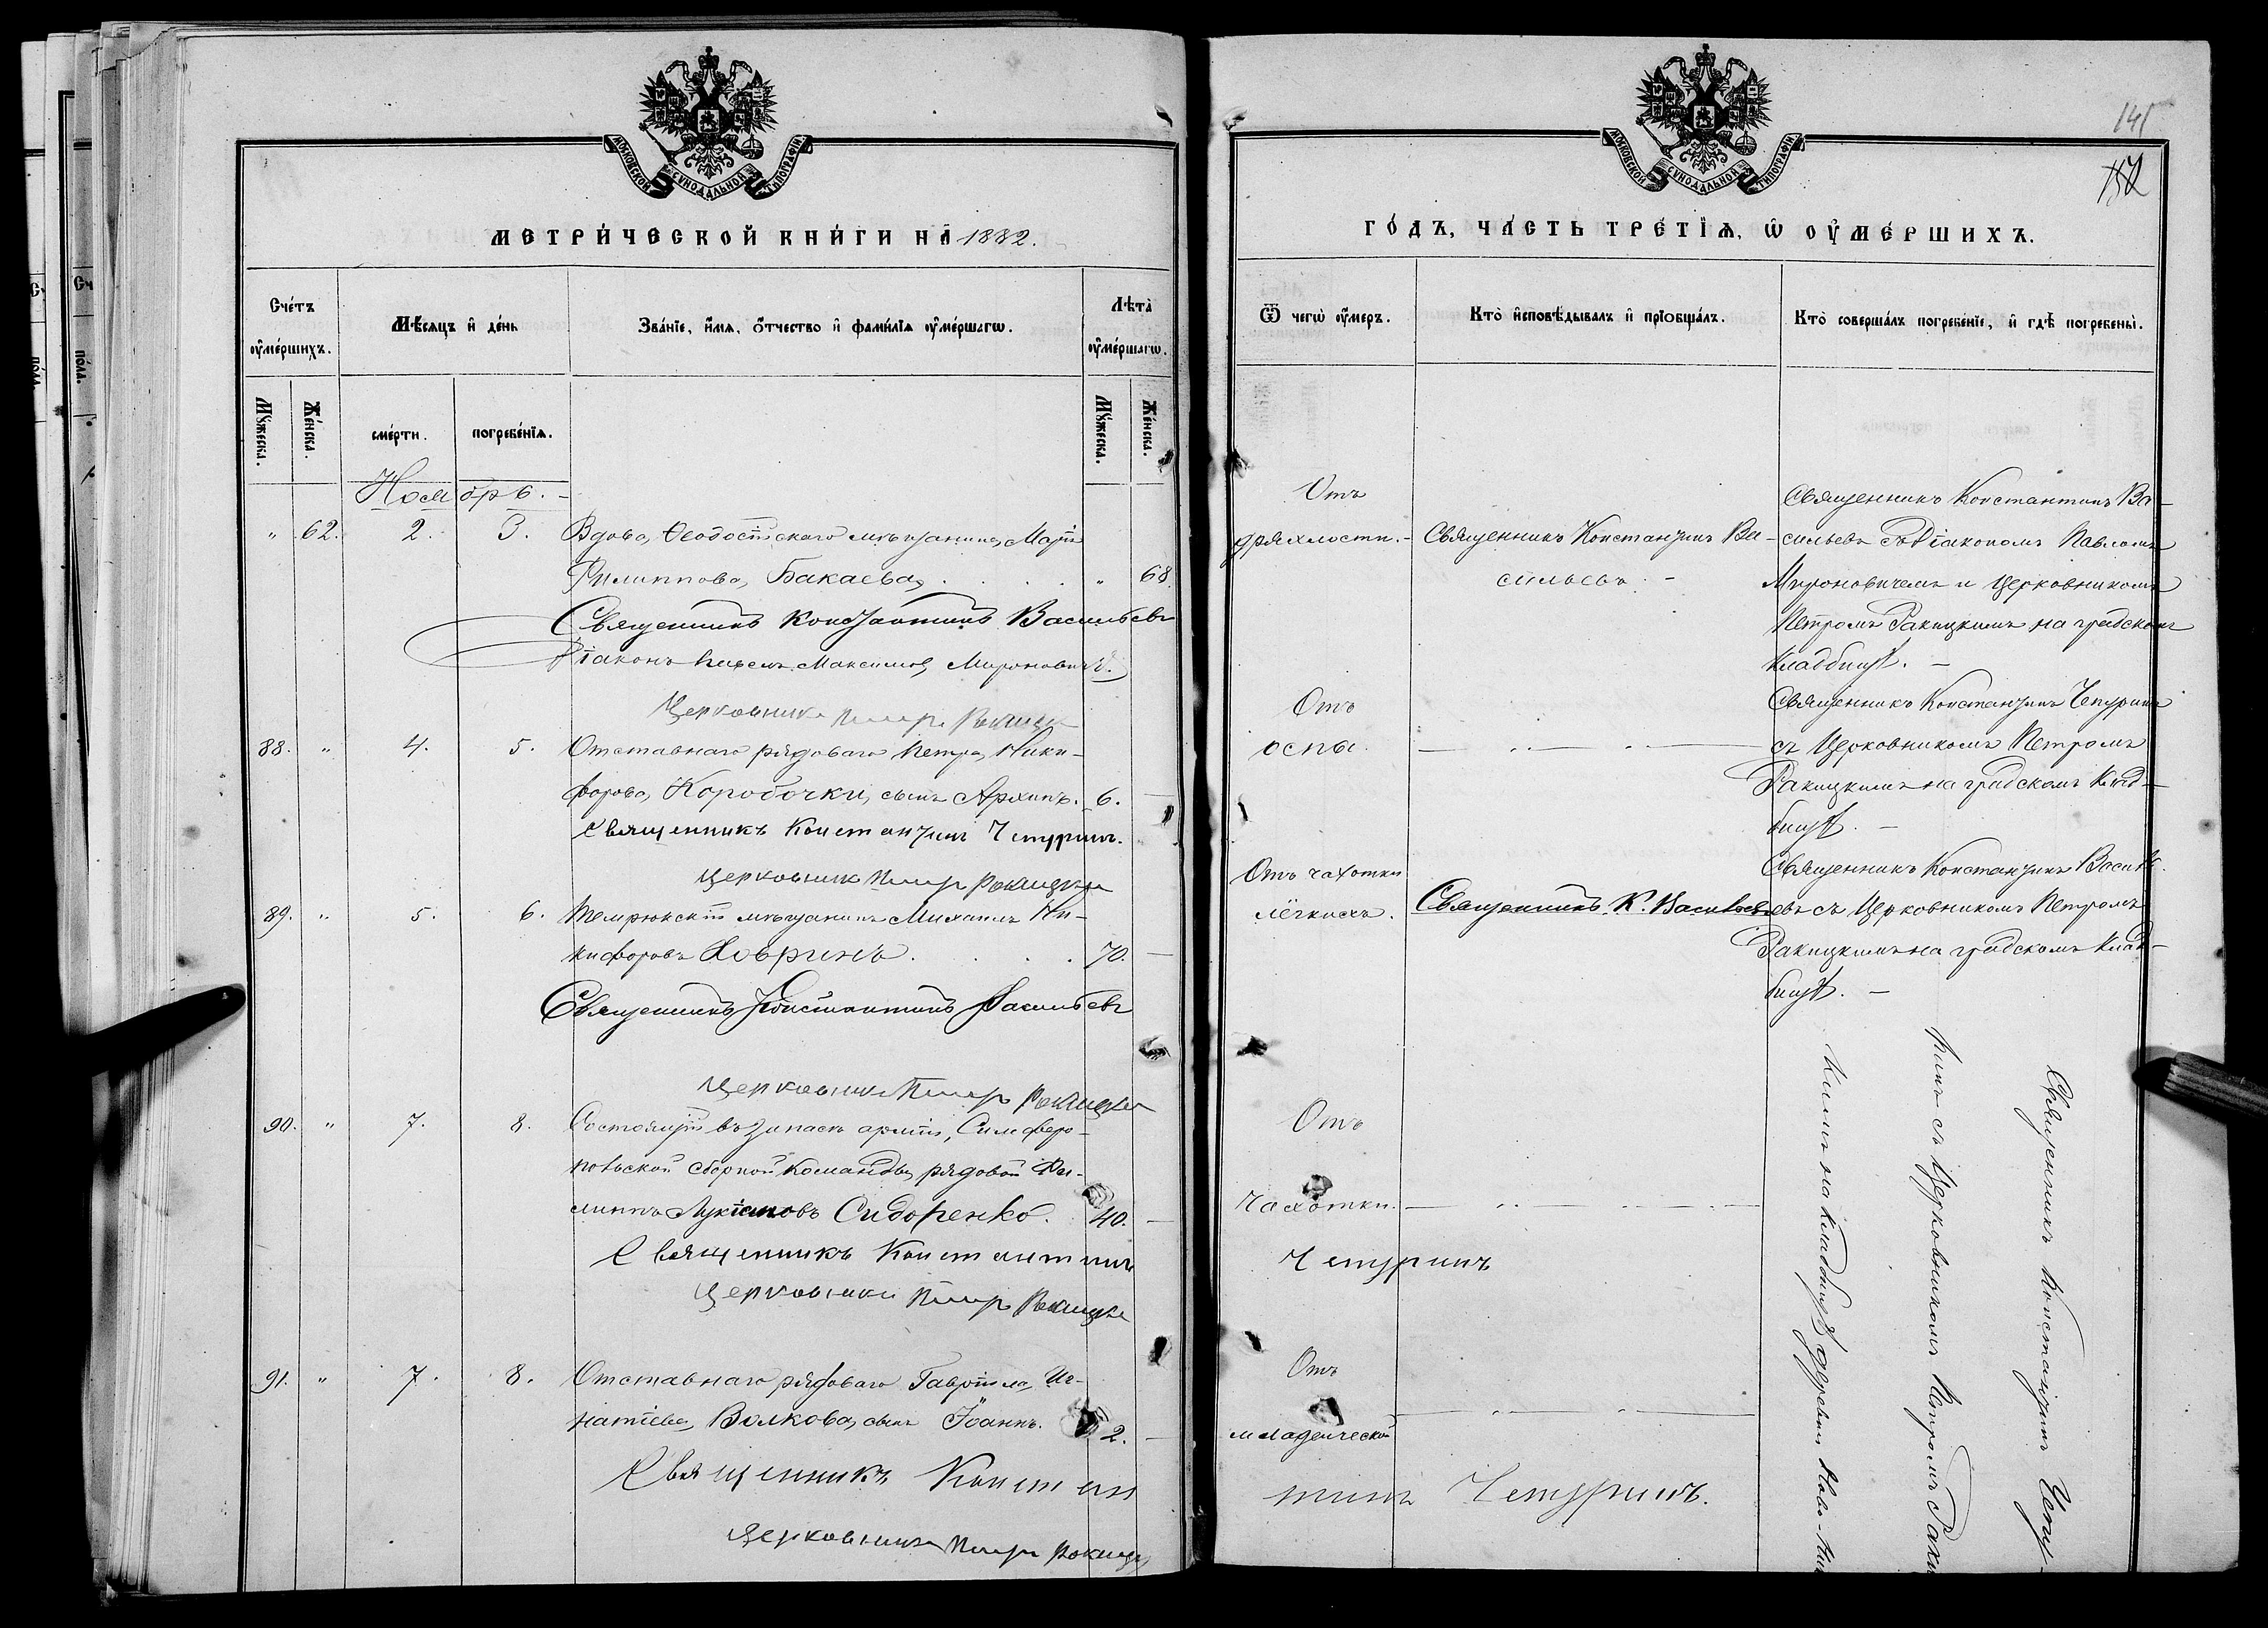 МОСКОВСКОЙ СѴНОДАЛЬНОЙ ТИПОГРАФІИ
МЕТРИ́ЧЕСКОЙ КНИ́ГИ НА̀ 1882.
Сче́тъ оу҆ме́ршихъ.
Мѣ́сяцъ и҆ де́нь
Зва́нїе, и҆́мя, ѻ҆́тчество и҆ фами́лїя оу҆ме́ршагѡ.
Лѣта̀ оу҆ме́ршагѡ.
Мꙋ́жеска.
Же́нска.
сме́рти.
погребе́нїя.
Мꙋ́жеска.
Же́нска.
Ноябрь.
„ 62. 2. 3. Вдова, Ѳеодосійскаго мѣщанина, Марія
Филиппова, Бакаева, . . . . „ 68.
Священникъ Константинъ Васильевъ
Діаконъ Павелъ Максимов Мироновичъ.
Церковникъ Петръ Ракицкій
88. „ 4. 5. Отставнаго рядоваго Петра, Ники-
форова, Коробочки, сынъ Архипъ. 6. —
Священникъ Константинъ Чепуринъ.
Церковникъ Петръ Ракицкій
89. „ 5. 6. Темрюкскій мѣщанинъ Михаилъ Ни-
кифоровъ Ховринъ . . . . 70. —
Священникъ Константинъ Васильевъ
Церковникъ Петръ Ракицкій
90. „ 7. 8. Состоящій въ запасѣ арміи, Симферо-
польской сборной команды, рядовой Фи-
липпъ Лукіановъ Сидоренко. 40. —
Священникъ Константинъ
Церковникъ Петръ Ракицкій
91. „ 7. 8. Отставнаго рядоваго Гавріила, Иг-
натіева, Волкова, сынъ Іоаннъ. 2. —
Священникъ Констан
Церковникъ Петръ Ракицкій
141
МОСКОВСКОЙ СѴНОДАЛЬНОЙ ТИПОГРАФІИ
ГО́ДЪ, ЧА́СТЬ ТРЕ́ТЇѦ, Ѡ҆ ОУ҆МЕ́РШИХЪ.
Ѿ чегѡ̀ оу҆́меръ.
Кто̀ и҆сповѣ́дывалъ и҆ прїобща́лъ.
Кто̀ соверша́лъ погребе́нїе, и҆ гдѣ̀ погребены̀.
Отъ
дряхлости. -
Священникъ Константинъ Ва-
сильевъ. -
Священникъ Константинъ Ва-
сильевъ съ Діакономъ Павломъ
Мироновичемъ и Церковникомъ
Петромъ Ракицкимъ на градскомъ
кладбищѣ. —
Отъ
оспы.
Священникъ Константинъ Чепуринъ
съ Церковникомъ Петромъ
Ракицкимъ на градскомъ клад-
бищѣ. —
Отъ чахотки
лёгкихъ.
Священникъ К. Васильевъ
Священникъ Константинъ Василь-
евъ съ Церковникомъ Петромъ
Ракицкимъ на градскомъ клад-
бищѣ. —
Отъ
чахотки.
Чепуринъ
Отъ
младенческой
тинъ Чепуринъ.
Священникъ Константинъ Чепу-
ринъ съ Церковникомъ Петромъ Ракиц
кимъ на кладбищѣ деревни Ново-